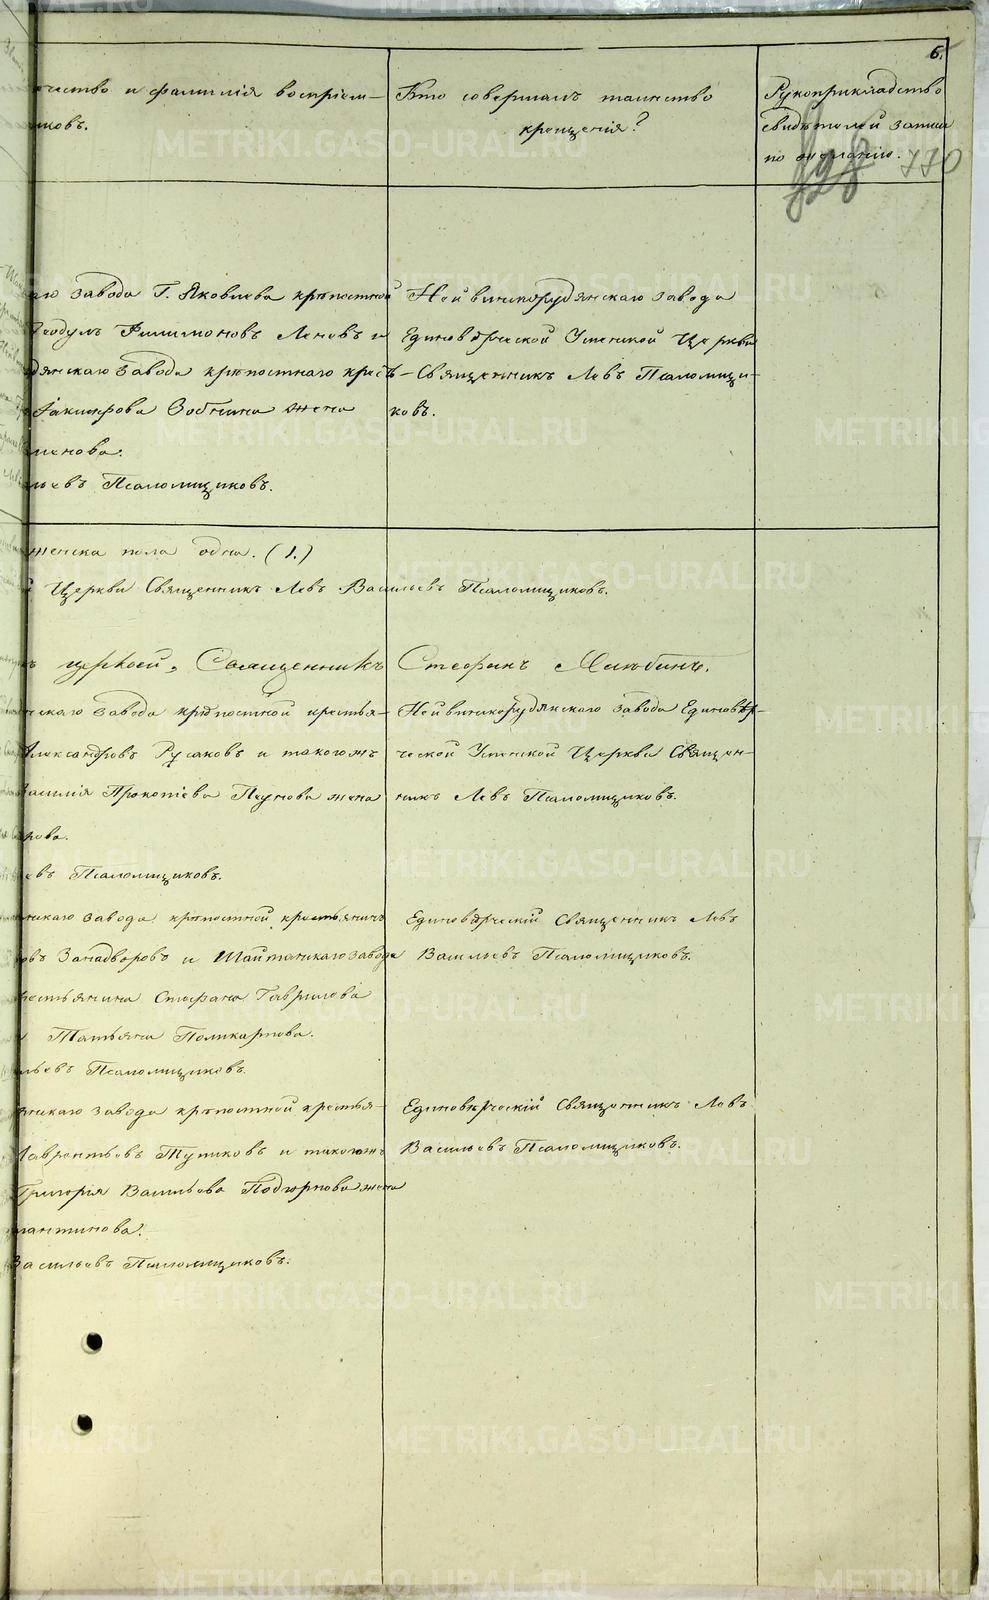 6.
чество и фамилія воспріем-
никовъ.
Кто совершалъ таинство
крещенія?
Рукоприкладство
свидѣтелей записи
по желанію.
770
аго завода Г. Яковлева крѣпостной
Ѳеодулъ Филимоновъ Леновъ и
дянскаго завода крѣпостнаго крест-
Іакинфова Зобнина жена
менова.
льевъ Псаломщиковъ.
Нейвинскорудянскаго завода
Единовѣрческой Успенской Церкви
Священникъ Левъ Псаломщи-
ковъ.
женска пола одна. (1.)
й Церкви Священникъ Левъ Васильевъ Псаломщиковъ.
ъ церквей, Священникъ Стефанъ Хлѣбинъ.
нскаго завода крѣпостной крестья-
Александровъ Русаковъ и такогожъ
Василія Прокопіева Паунова жена
рова.
евъ Псаломщиковъ.
Нейвинскорудянскаго завода Единовѣр-
ческой Успенской Церкви Священ-
никъ Левъ Псаломщиковъ.
нскаго завода крѣпостной крестьянинъ
овъ Занадворовъ и Шайтанскаго завода
рестьянина Стефана Гаврилова
Татьяна Поликарпова.
льевъ Псаломщиковъ.
Единовѣрческій Священникъ Левъ
Васильевъ Псаломщиковъ.
янскаго завода крѣпостной крестья-
Лаврентьевъ Тупиковъ и такогожъ
Григорія Васильева Подкорнова жена
тантинова.
Васильевъ Псаломщиковъ.
Единовѣрческій Священникъ Левъ
Васильевъ Псаломщиковъ.
METRIKI.GASO-URAL.RU